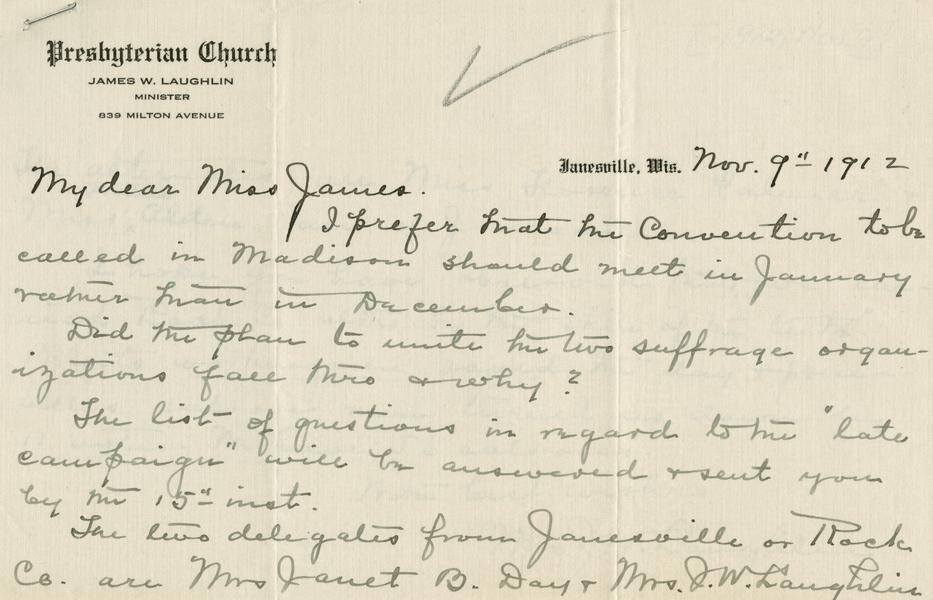 Presbyterian Church
JAMES W. LAUGHLIN
MINISTER
839 MILTON AVENUE
Janesville, Wis. Nov. 9th 1912
My dear Miss James.
I prefer that the Convention to be
called in Madison should meet in January
rather than in December.
Did the plan to unite the two suffrage organ-
izations fall thro & why?
The list of questions in regard to the "late
campaign" will be answered & sent you
by the 15th inst.
The two delegates from Janesville or Rock
Co. are Mrs Janet B. Day & Mrs. J. W. Laughlin